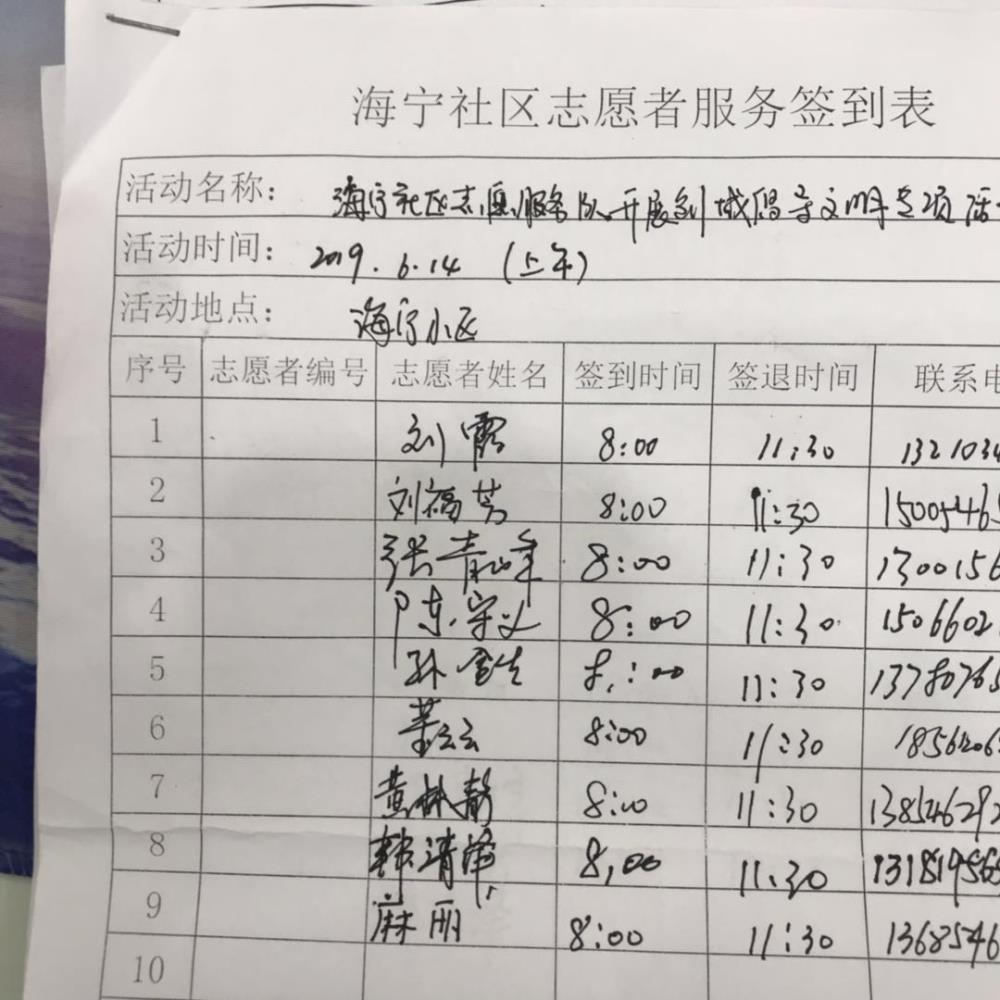 海宁社区志愿者服务签到表
活动名称： 海宁社区志愿服务队开展创城倡导文明专项活
活动时间： 2019.6.14 （上午）
活动地点： 海宁小区
序号 志愿者编号 志愿者姓名 签到时间 签退时间 联系电
1 刘霞 8:00 11:30 1321034
2 刘福芳 8:00 11:30 15005465
3 张青峰 8:00 11:30 1300156
4 陈守义 8:00 11:30 1506602
5 孙金生 8:00 11:30 13780765
6 董云云 8:00 11:30 1856206
7 黄林静 8:00 11:30 138546292
8 韩清 8,00 11.30 131819565
9 麻丽 8:00 11:30 1368546
10